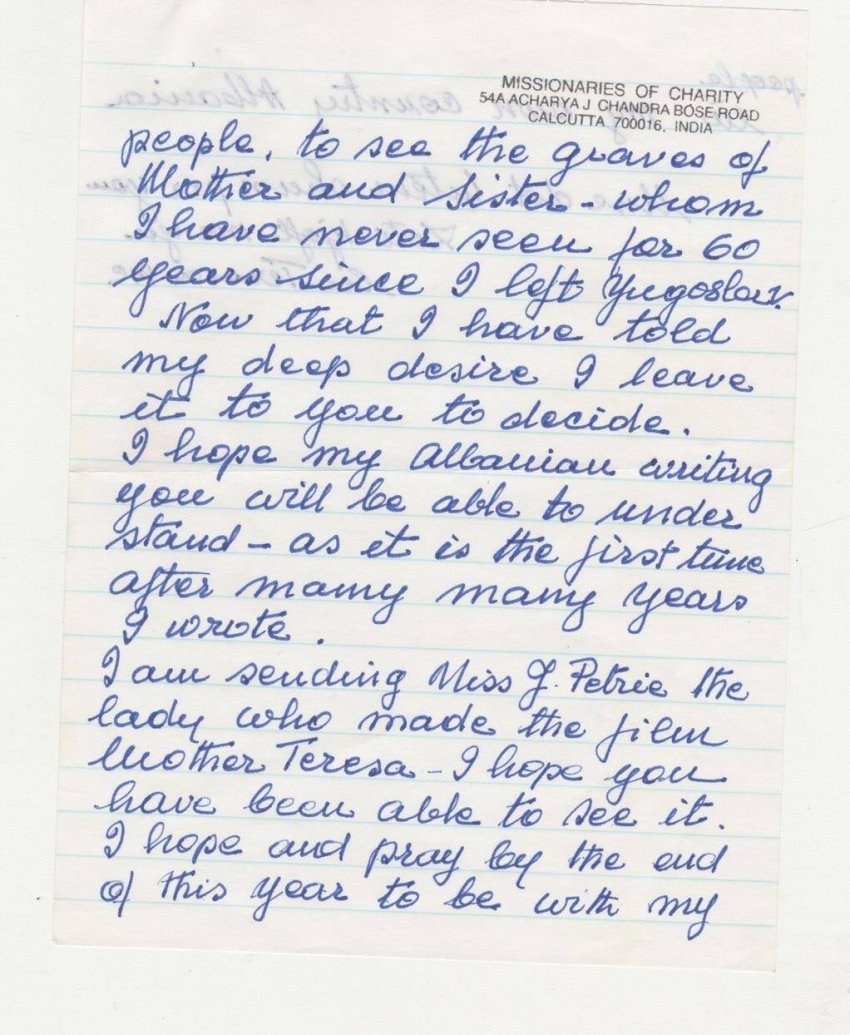 MISSIONARIES OF CHARITY
54A ACHARYA J CHANDRA BOSE ROAD
CALCUTTA 700016, INDIA
people, to see the graves of
Mother and Sister - whom
I have never seen for 60
years since I left Yugoslav.
Now that I have told
my deep desire I leave
it to you to decide.
I hope my Albanian writing
you will be able to under
stand - as it is the first time
after many many years
I wrote.
I am sending Miss J. Petrie the
lady who made the film
Mother Teresa - I hope you
have been able to see it.
I hope and pray by the end
of this year to be with my